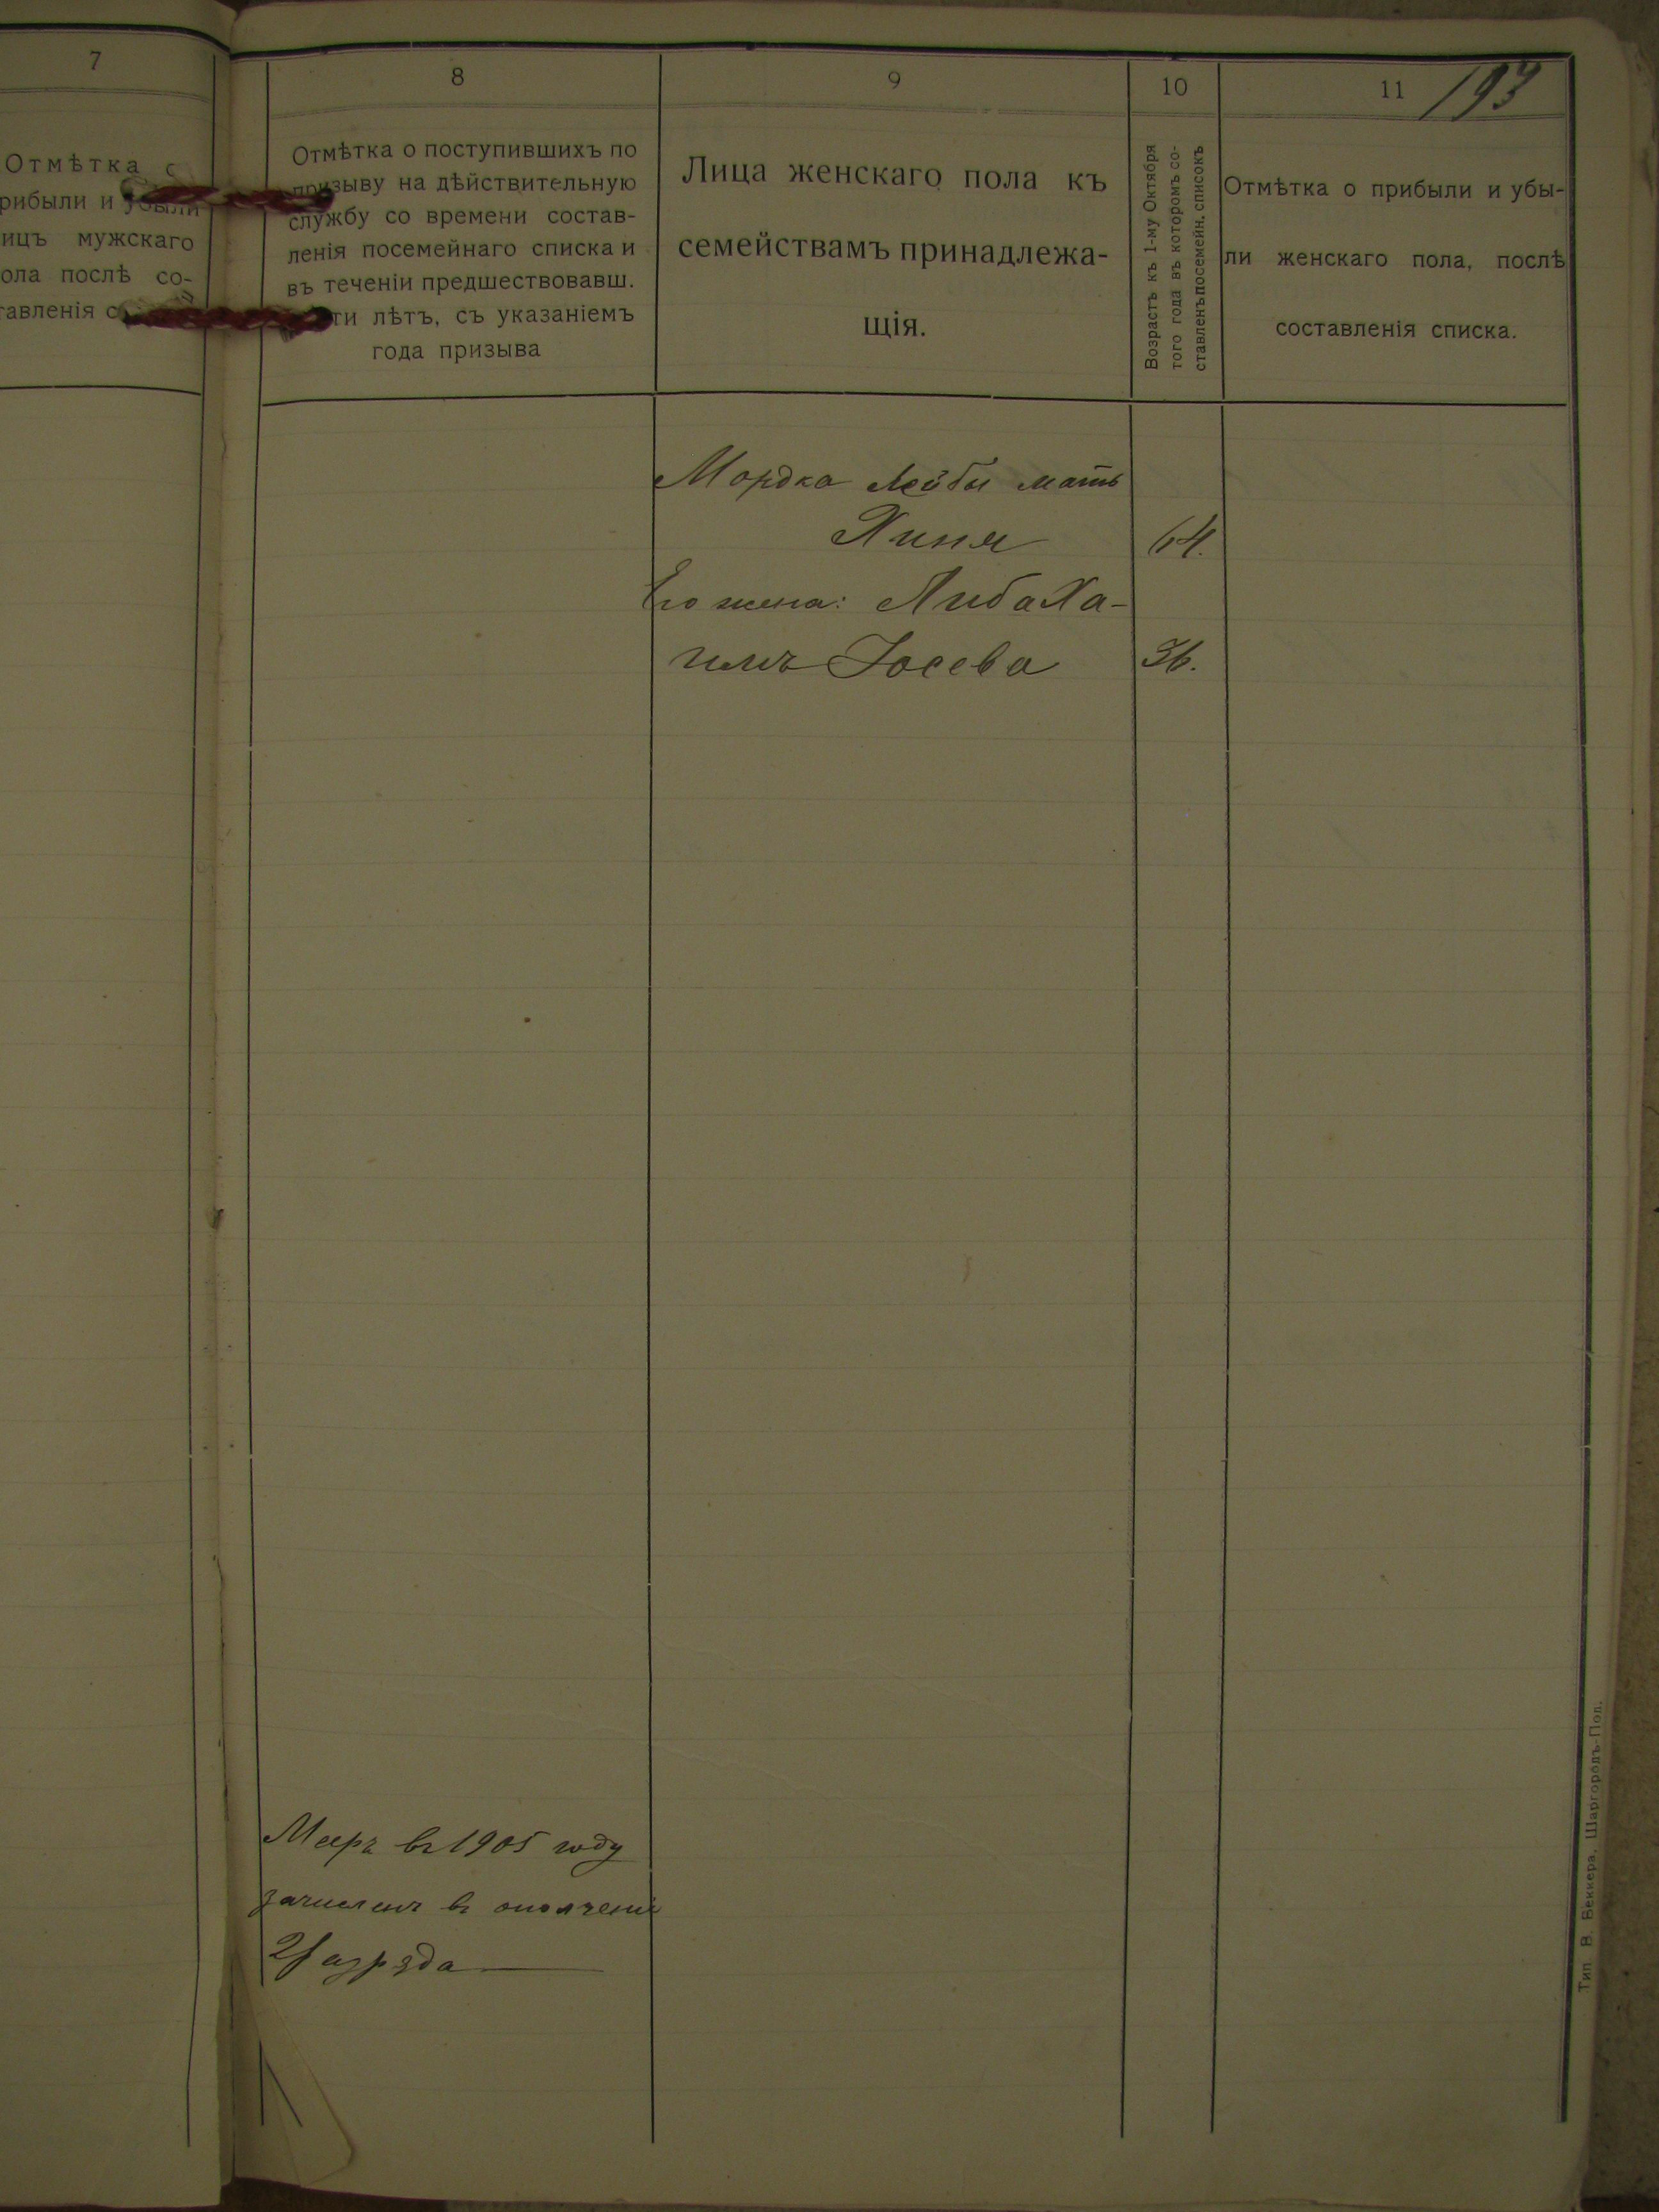 7
Отмѣтка
рибыли и убыли
ицъ мужскаго
ола послѣ со-
тавленія с
8
Отмѣтка о поступившихъ по
призыву на дѣйствительную
службу со времени состав-
ленія посемейнаго списка и
въ теченіи предшествовавш.
ти лѣтъ, съ указаніемъ
года призыва
9
Лица женскаго пола къ
семействамъ принадлежа-
щія.
10
Возрастъ къ 1-му Октября
того года въ которомъ со-
ставленъ посемейн. списокъ
11
193
Отмѣтка о прибыли и убы-
ли женскаго пола, послѣ
составленія списка.
Мордка Лейбы мать
Хиня 64.
Его жена: Либа Ха-
Іосева 36.
Мееръ въ 1905 году
зачисленъ въ ополченіе
2 разряда
Тип. В. Беккера, Шаргородъ-Под.